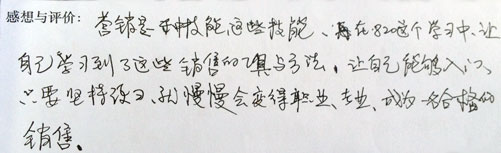 感想与评价：营销是一种技能这些技能、再在820这个学习中、让
自己学习到了这些销售的工具与方法，让自己能够入门、
只要坚持学习、就慢慢会变得职业、专业、成为一名合格的
销售。